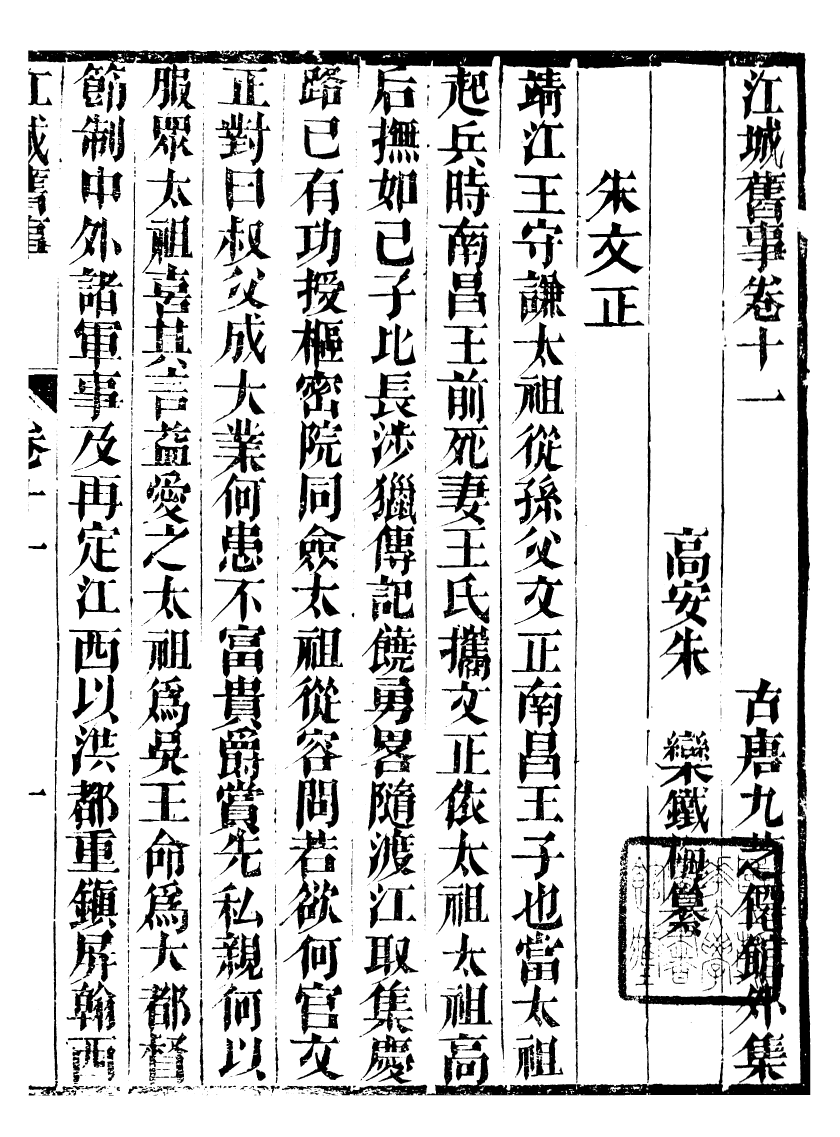 江城舊事卷十一　古唐九芝僊館外集
高安朱　欒鐵梅纂
朱文正
靖江王守謙太祖從孫父文正南昌王子也當太祖
起兵時南昌王前死妻王氏攜文正依太祖太祖高
后撫如己子比長涉獵傳記饒勇畧隨渡江取集慶
路已有功授樞密院同僉太祖從容問若欲何官文
正對曰叔父成大業何患不富貴爵賞先私親何以
服眾太祖喜其言益愛之太祖爲吳王命爲大都督
節制中外諸軍事及再定江西以洪都重鎮屏翰西
江城舊事　卷十一　一